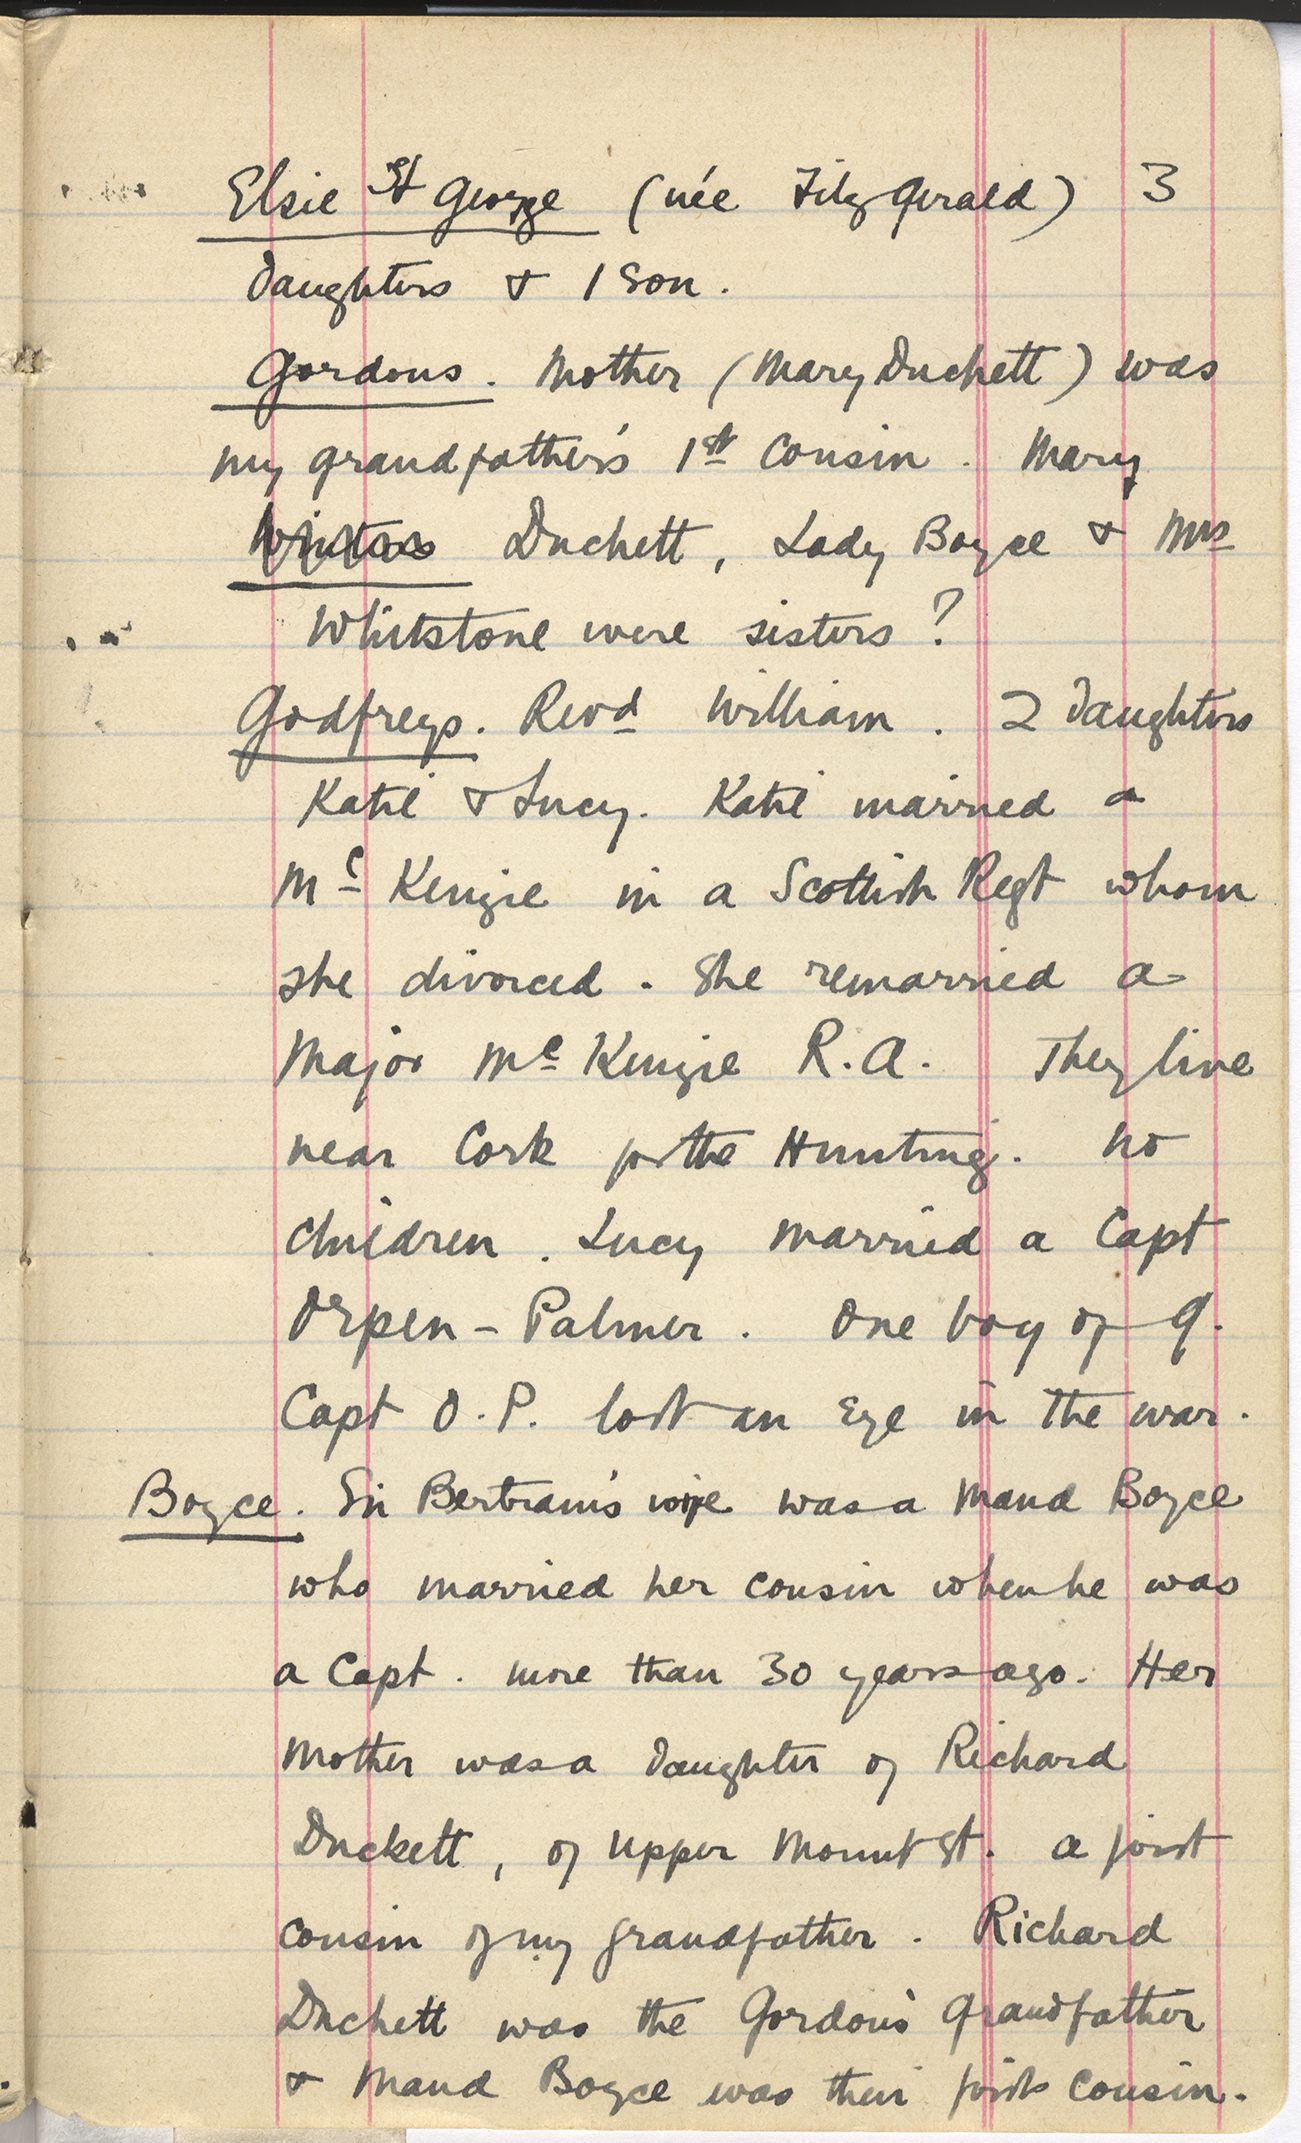 Elsie St George (née FitzGerald) 3
daughters & 1 son.
Gordons. Mother (Mary Duckett) was
my grandfather's 1st cousin. Mary
Duckett, Lady Boyce & Mrs
Whitstone were sisters?
Godfreys. Revd William. 2 daughters
Katie & Lucy. Katie married a
Mc Kenzie in a Scottish Regt whom
she divorced. She remarried a
Major Mc Kenzie R.A. They live
near Cork for the Hunting. No
children. Lucy married a Capt
Orpen-Palmer. One boy of 9.
Capt O.P. lost an eye in the war.
Boyce. Sir Bertram's wife was a Maud Boyce
who married her cousin when he was
a Capt. more than 30 years ago. Her
Mother was a daughter of Richard
Duckett, of Upper Mount St. a first
cousin of my grandfather. Richard
Duckett was the Gordon's Grandfather
& Maud Boyce was their first cousin.